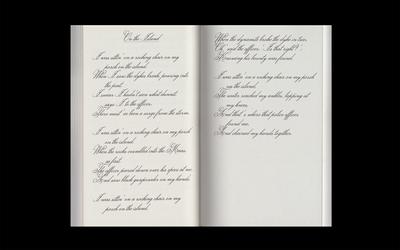 On the Island
I was sittin' on a rocking chair on my
porch on the island.
When I saw the dyke break, pouring into
the port.
I swear I hadn't seen what doesn't,
says I to the officer.
There must've been a surge from the storm.
I was sittin' on a rocking chair on my porch
on the island.
When the rocks crumbled into the Meuse
so fast.
The officer peered down over his specs at me
And saw black gunpowder on my hands.
I was sittin' on a rocking chair on my
porch on the island.
When the dynamite broke the dyke in two,
"Oh," said the officer, "Is that right?"
Knowing his bounty was found.
I was sittin' on a rocking chair on my porch
on the island.
The water reached my ankles, lapping at
my knees,
And that's where that police officer
found me,
And chained my hands together.